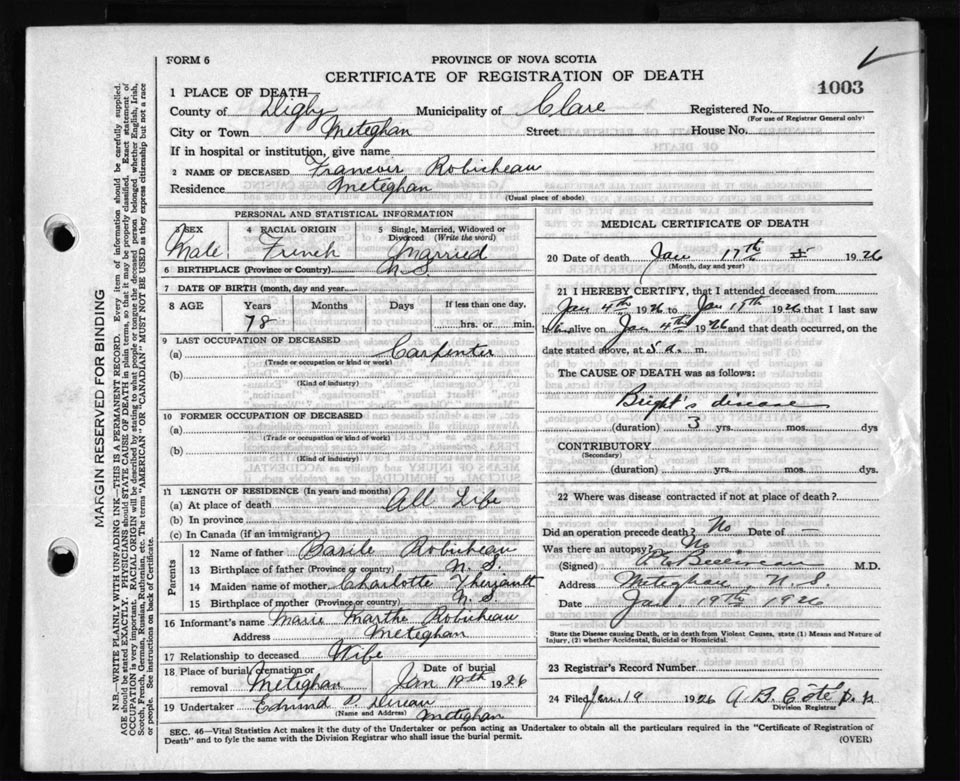 FORM 6
PROVINCE OF NOVA SCOTIA
CERTIFICATE OF REGISTRATION OF DEATH
1003
1 PLACE OF DEATH
County of Digby Municipality of Clare Registered No.
(For use of Registrar General only)
City or Town Meteghan Street House No.
If in hospital or institution, give name
2 NAME OF DECEASED Francois Robicheau
Residence Meteghan
(Usual place of abode)
PERSONAL AND STATISTICAL INFORMATION
3 SEX 4 RACIAL ORIGIN 5 Single, Married, Widowed or Divorced (Write the word)
Male French Married
6 BIRTHPLACE (Province or Country) N.S.
7 DATE OF BIRTH (month, day and year)
8 AGE Years Months Days If less than one day,
78 hrs. or min.
9 LAST OCCUPATION OF DECEASED
(a) Carpenter
(Trade or occupation or kind or work)
(b)
(Kind of industry)
10 FORMER OCCUPATION OF DECEASED
(a)
(Trade or occupation or kind of work)
(b)
(Kind of Industry)
11 LENGTH OF RESIDENCE (In years and months)
(a) At place of death All Life
(b) In province
(c) In Canada (if an immigrant)
Parents
12 Name of father Basile Robicheau
13 Birthplace of father (Province or country) N.S.
14 Maiden name of mother Charlotte
15 Birthplace of mother (Province or country) N.S.
16 Informant's name Marie Marthe Robicheau
Address Meteghan
17 Relationship to deceased Wife
18 Place of burial, cremation or removal Meteghan Date of burial Jan 19th 1926
19 Undertaker Edmund
(Name and Address) Meteghan
MEDICAL CERTIFICATE OF DEATH
20 Date of death Jan 17th 1926
(Month, day and year)
21 I HEREBY CERTIFY, that I attended deceased from
Jan 4th 1926 to Jan 1926 that I last saw
h alive on Jan 4th 1926 and that death occurred, on the
date stated above, at 5 a. m.
The CAUSE OF DEATH was as follows:
Bright's disease
(duration) 3 yrs. mos. dys
CONTRIBUTORY
(Secondary)
(duration) yrs. mos. dys.
22 Where was disease contracted if not at place of death?
Did an operation precede death? No Date of —
Was there an autopsy? No
(Signed) M.D.
Address Meteghan, N.S.
Date Jan. 19th 1926
State the Disease causing Death, or in death from Violent Causes, state (1) Means and Nature of Injury, (2) whether Accidental, Suicidal or Homicidal.
23 Registrar's Record Number
24 Filed Jan. 19 1926 A B. Côté
Division Registrar
SEC. 46—Vital Statistics Act makes it the duty of the Undertaker or person acting as Undertaker to obtain all the particulars required in the "Certificate of Registration of
Death" and to fyle the same with the Division Registrar who shall issue the burial permit. (OVER)
MARGIN RESERVED FOR BINDING
N.B.—WRITE PLAINLY WITH UNFADING INK—THIS IS A PERMANENT RECORD. Every item of information should be carefully supplied.
AGE should be stated EXACTLY. PHYSICIANS should STATE CAUSE OF DEATH in plain terms, so that it may be properly classified. Exact statement of
OCCUPATION is very important. RACIAL ORIGIN will be described by stating to what people or tongue the deceased person belonged whether English, Irish,
Scotch, French, German, Russian, Ruthenian, etc. The terms "AMERICAN" OR "CANADIAN" MUST NOT BE USED as they express citizenship but not a race
or people. See instructions on back of Certificate.